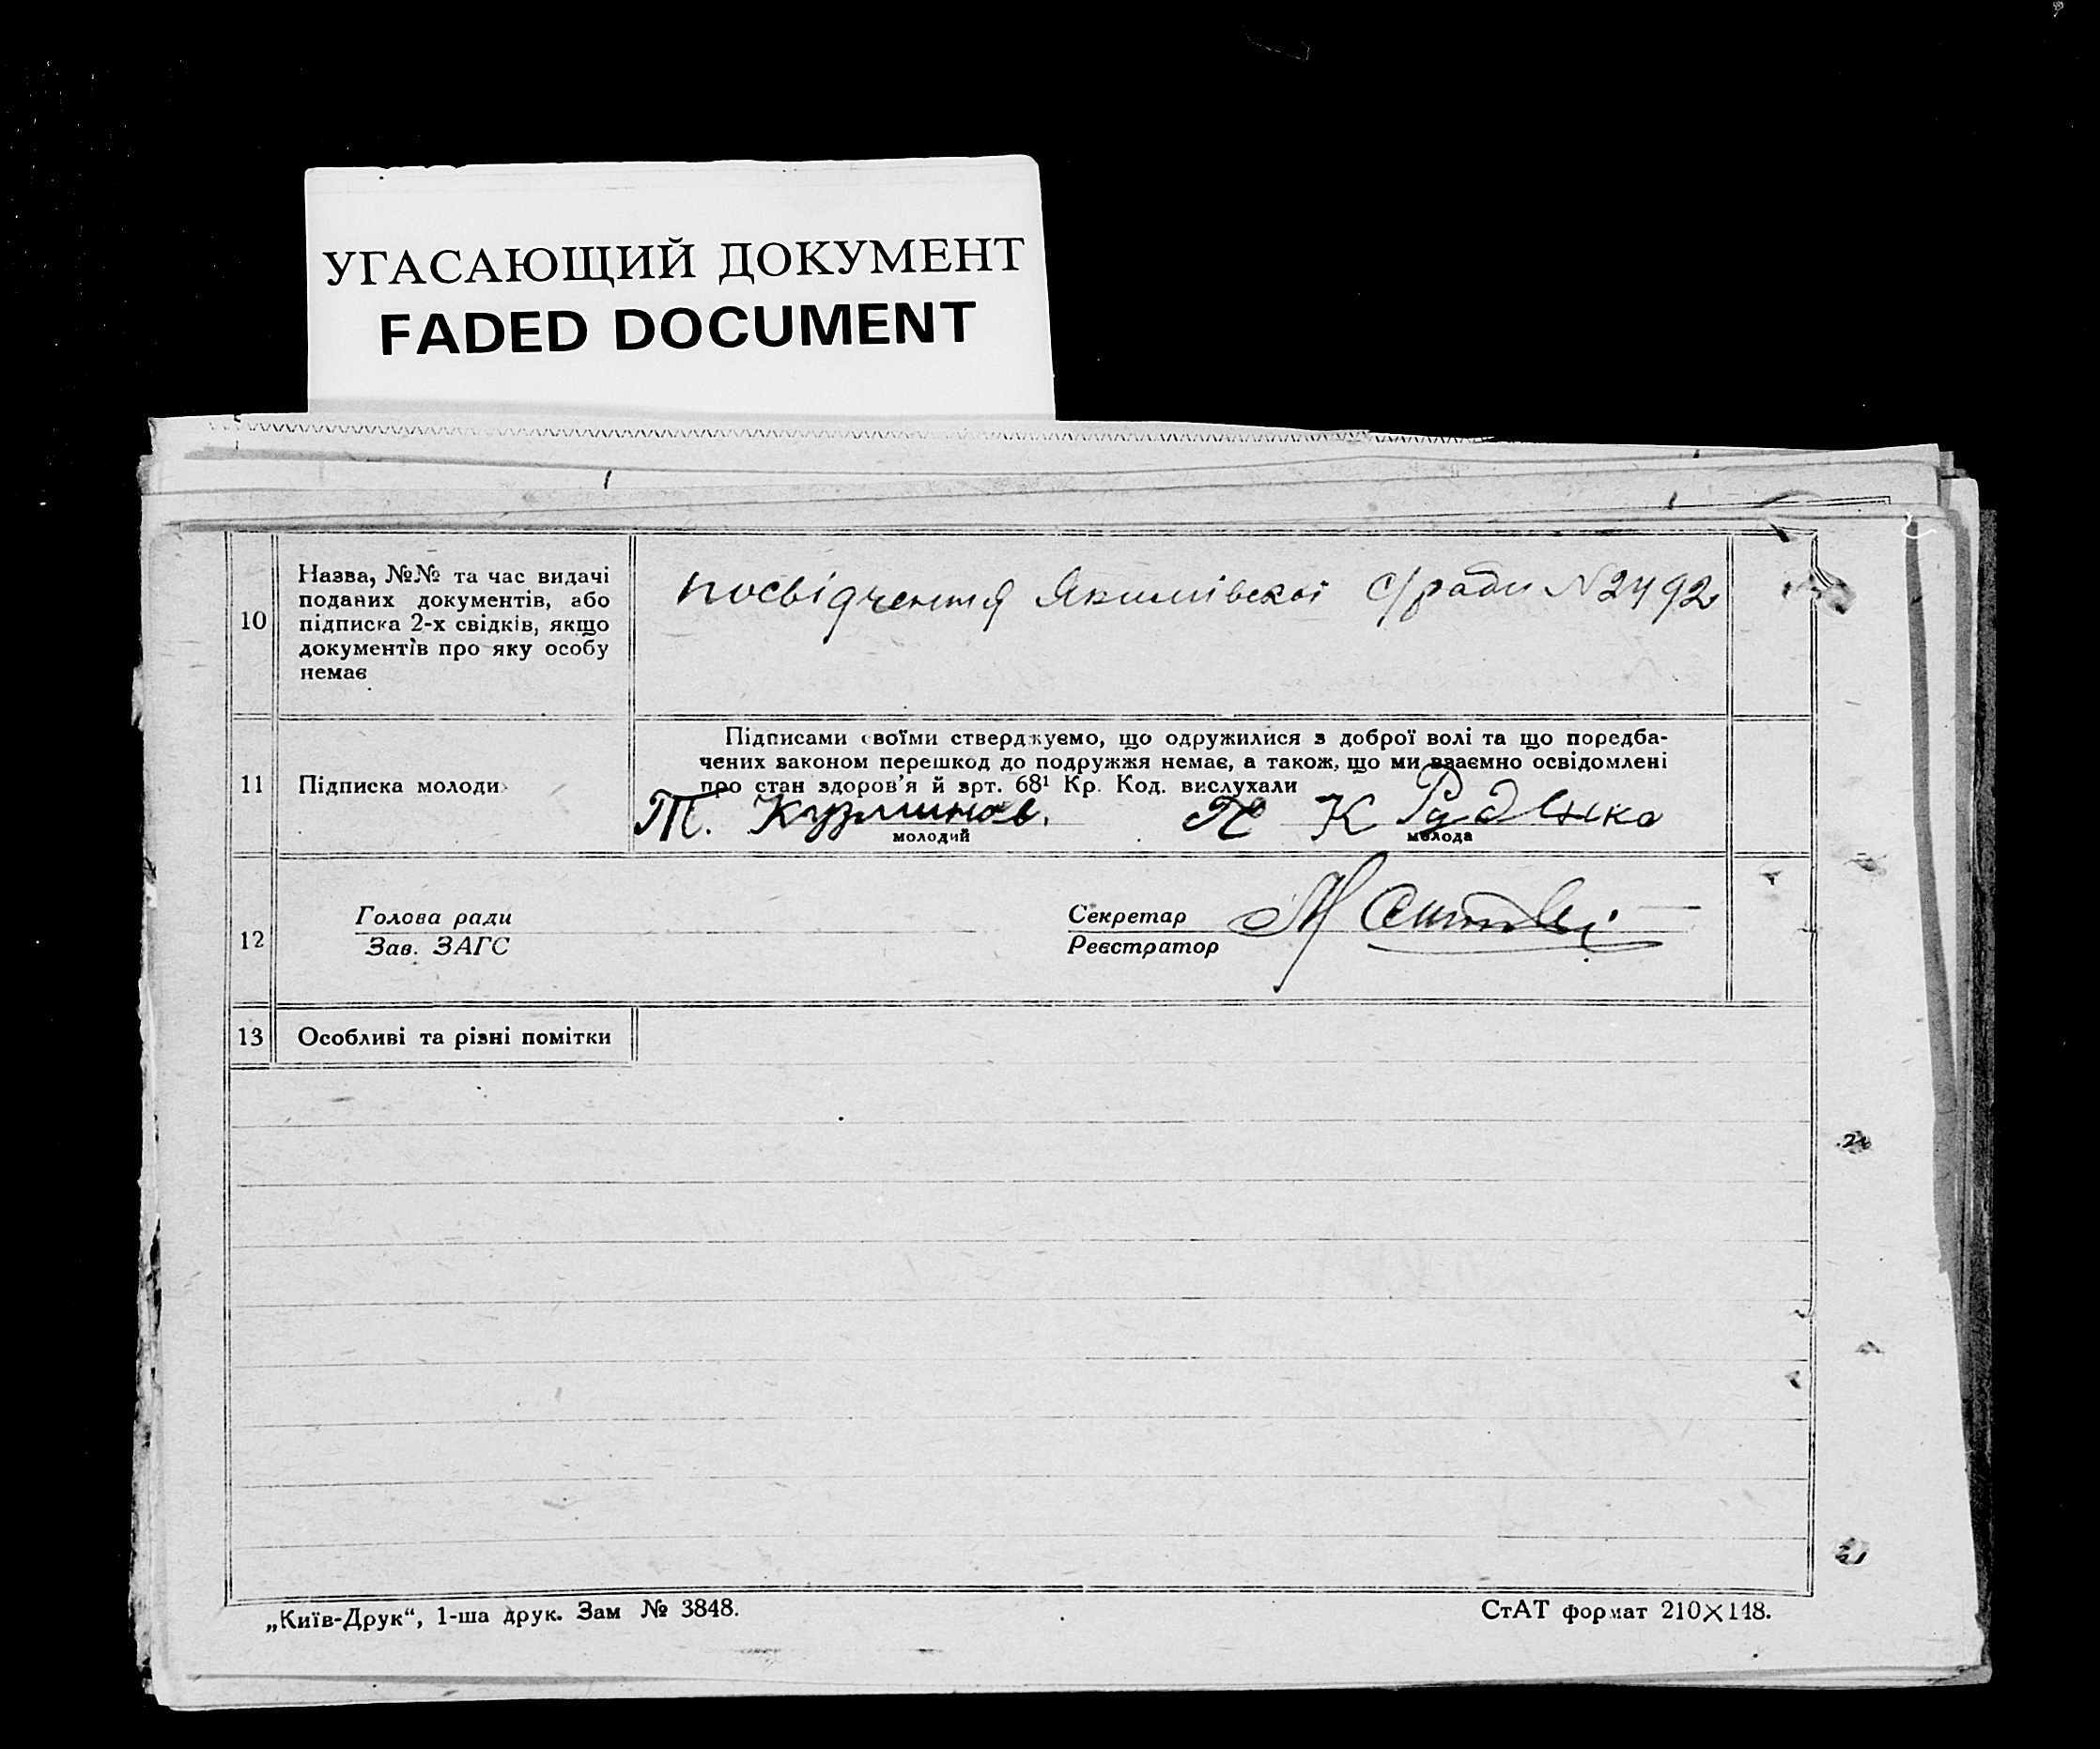 УГАСАЮЩИЙ ДОКУМЕНТ
FADED DOCUMENT
10
Назва, №№ та час видачі
поданих документів, або
підписка 2-х свідків, якщо
документів про яку особу
немає
посвідчення Якимівскої с/ради N 2492
11
Підписка молоди
Підписами своїми стверджуємо, що одружилися з доброї волі та що поредба-
чених законом перешкод до подружжя немає, а також, що ми взаємно освідомлені
про стан здоров'я й арт. 68¹ Кр. Код. вислухали
Т. Кузминов. К Руденко
молодий молода
12
Голова ради
Зав. ЗАГС
Секретар
Реєстратор
13
Особливі та різні помітки
„Київ-Друк“, 1-ша друк. Зам № 3848.
СтАТ формат 210×148.